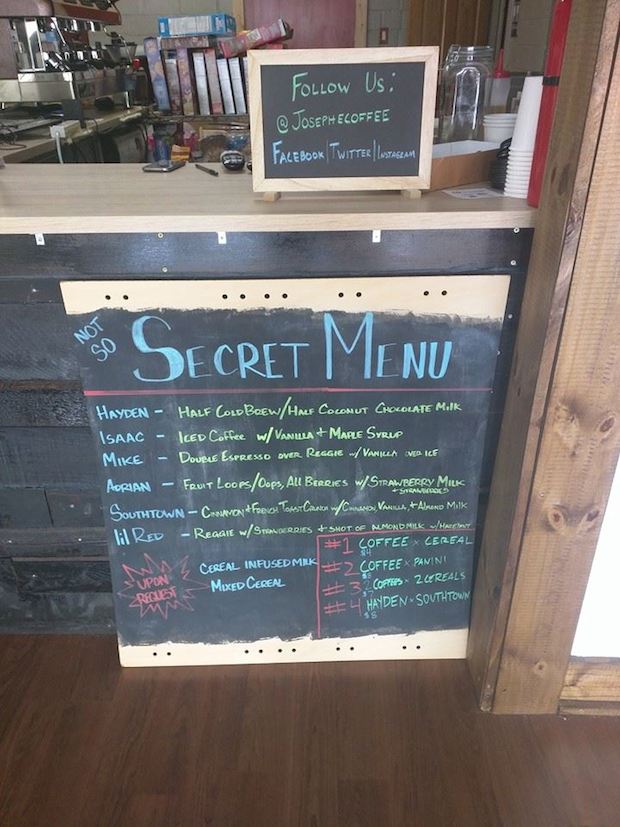 Follow Us:
@Josephecoffee
Facebook | Twitter | Instagram
NOT
SO
SECRET MENU
Hayden - Half Cold Brew/Half Coconut Chocolate Milk
Isaac - Iced Coffee w/ Vanilla + Maple Syrup
Mike - Double Espresso over Reggie w/ Vanilla over ice
Adrian - Fruit Loops/Oops, All Berries w/ Strawberry Milk
+ Strawberries
Southtown - Cinnamon + French Toast Crunch w/ Cinnamon, Vanilla, + Almond Milk
lil Red - Reggie w/ Strawberries + shot of Almond Milk w/ Hazelnut
UPON
REQUEST
Cereal infused milk
Mixed Cereal
#1 Coffee x Cereal
$4
#2 Coffee x Panini
#3 2 Coffees x 2 Cereals
$7
#4 Hayden x Southtown
$8